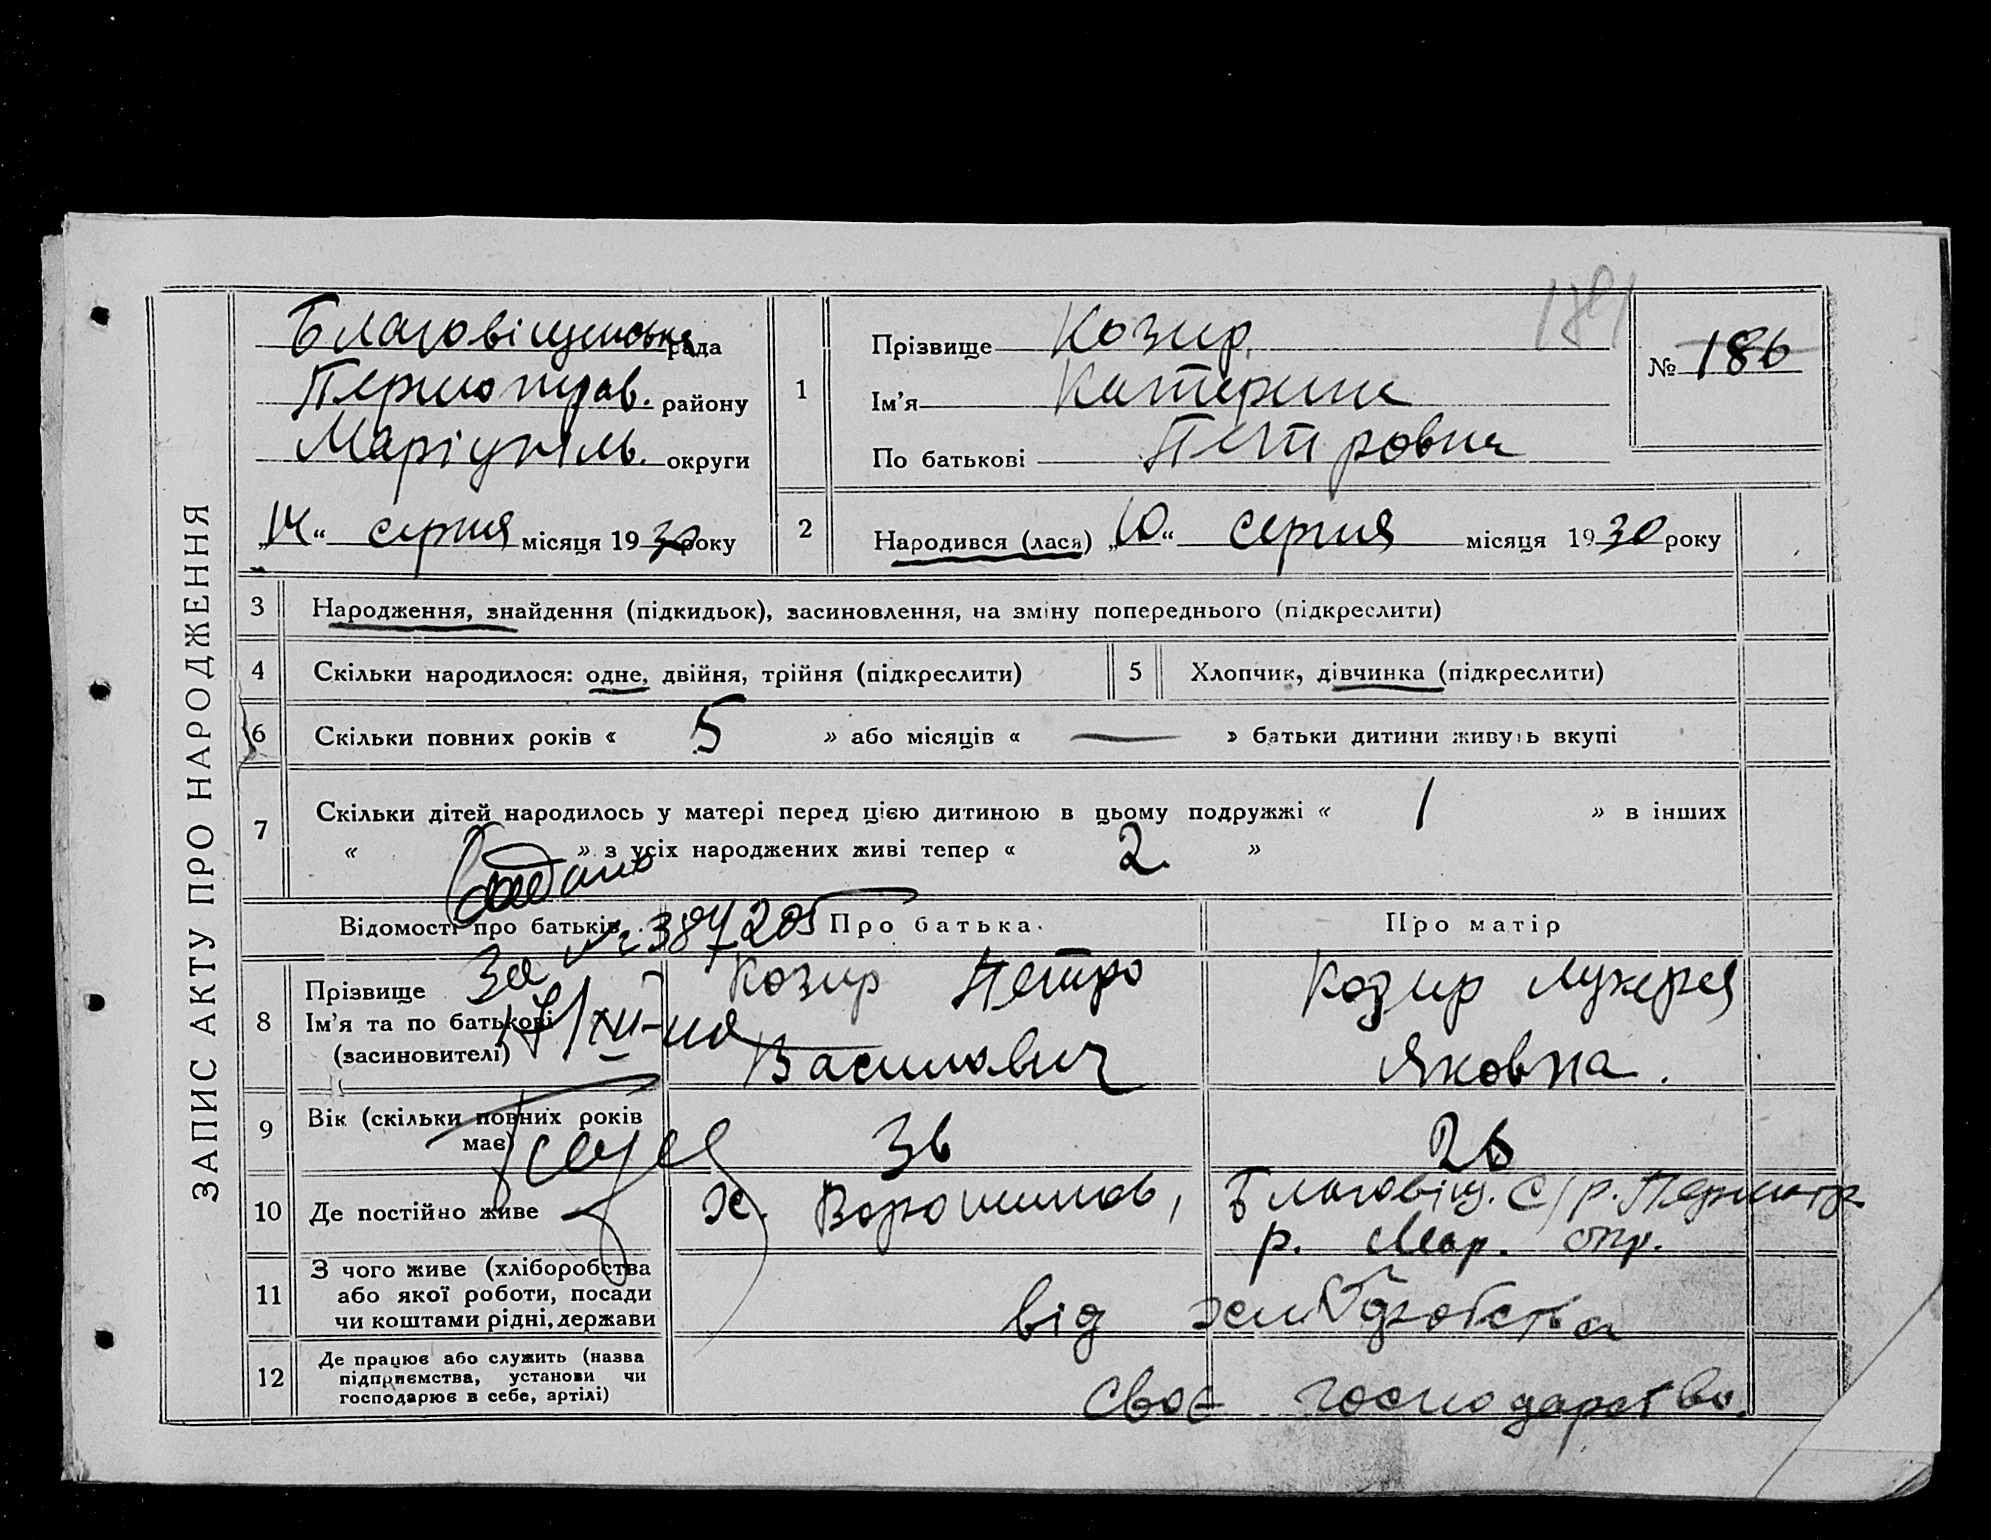 ЗАПИС АКТУ ПРО НАРОДЖЕННЯ
Благовіщенська рада
району
Маріупіль. округи
„14“ серпня місяця 1930 року
1
Прізвище Козир
Ім'я Катерина
По батькові Петровна
181
№ 186
2
Народився (лася) „10“ серпня місяця 1930 року
3 Народження, знайдення (підкидьок), засиновлення, на зміну попереднього (підкреслити)
4 Скільки народилося: одне, двійня, трійня (підкреслити)
5 Хлопчик, дівчинка (підкреслити)
6 Скільки повних років « 5 » або місяців « — » батьки дитини живуть вкупі
7 Скільки дітей народилось у матері перед цією дитиною в цьому подружжі « 1 » в інших
« » з усіх народжених живі тепер « 2 »
Відомості про батьків
Про батька
Про матір
За № 387205
8 Прізвище
Ім'я та по батькові
(засиновителі)
Козир Петро
Василович
Козир Лукерея
Яковна.
9 Вік (скільки повних років
має)
36
26
10 Де постійно живе
х. Ворошилов, Благовіщ. с/р.
р. Мар. окр.
11 З чого живе (хліборобства
або якої роботи, посади
чи коштами рідні, держави
від хліборобства
12 Де працює або служить (назва
підприємства, установи чи
господарює в себе, артілі)
своє господарство.